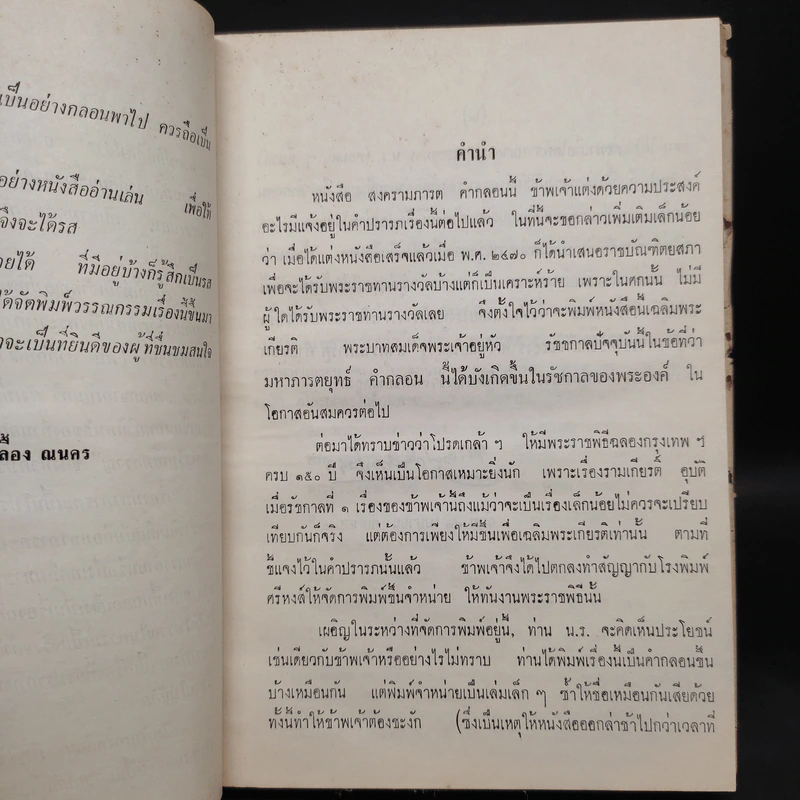 เป็นอย่างกลอนพาไป ควรถือเป็น
อย่างหนังสืออ่านเล่น เพื่อให้
จึงจะได้รส
ายได้ ที่มีอยู่บ้างก็รู้สึกเป็นรส
ได้จัดพิมพ์วรรณกรรมเรื่องนี้ขึ้นมา
าจะเป็นที่ยินดีของผู้ที่ชื่นชมสนใจ
ลื้อง ณนคร
คำนำ
หนังสือ สงครามภารต คำกลอนนี้ ข้าพเจ้าแต่งด้วยความประสงค์
อะไรมีแจ้งอยู่ในคำปรารภเรื่องนี้ต่อไปแล้ว ในที่นี้จะขอกล่าวเพิ่มเติมเล็กน้อย
ว่า เมื่อได้แต่งหนังสือเสร็จแล้วเมื่อ พ.ศ. ๒๔๗๐ ก็ได้นำเสนอราชบัณฑิตยสภา
เพื่อจะได้รับพระราชทานรางวัลบ้างแต่ก็เป็นเคราะห์ร้าย เพราะในศกนั้น ไม่มี
ผู้ใดได้รับพระราชทานรางวัลเลย จึงตั้งใจไว้ว่าจะพิมพ์หนังสือนี้เฉลิมพระ
เกียรติ พระบาทสมเด็จพระเจ้าอยู่หัว รัชชกาลปัจจุบันนี้ในข้อที่ว่า
มหาภารตยุทธ์ คำกลอน นี้ได้บังเกิดขึ้นในรัชกาลของพระองค์ ใน
โอกาสอันสมควรต่อไป
ต่อมาได้ทราบข่าวว่าโปรดเกล้า ฯ ให้มีพระราชพิธีฉลองกรุงเทพ ฯ
ครบ ๑๕๐ ปี จึงเห็นเป็นโอกาสเหมาะยิ่งนัก เพราะเรื่องรามเกียรติ์ อุบัติ
เมื่อรัชกาลที่ ๑ เรื่องของข้าพเจ้านี้ถึงแม้ว่าจะเป็นเรื่องเล็กน้อยไม่ควรจะเปรียบ
เทียบกันก็จริง แต่ต้องการเพียงให้มีขึ้นเพื่อเฉลิมพระเกียรติเท่านั้น ตามที่
ชี้แจงไว้ในคำปรารภนั้นแล้ว ข้าพเจ้าจึงได้ไปตกลงทำสัญญากับโรงพิมพ์
ศรีหงส์ให้จัดการพิมพ์ขึ้นจำหน่าย ให้ทันงานพระราชพิธีนั้น
เผอิญในระหว่างที่จัดการพิมพ์อยู่นี้, ท่าน น.ร. จะคิดเห็นประโยชน์
เช่นเดียวกับข้าพเจ้าหรืออย่างไรไม่ทราบ ท่านได้พิมพ์เรื่องนี้เป็นคำกลอนขึ้น
บ้างเหมือนกัน แต่พิมพ์จำหน่ายเป็นเล่มเล็ก ๆ ซ้ำให้ชื่อเหมือนกันเสียด้วย
ทั้งนี้ทำให้ข้าพเจ้าต้องชะงัก (ซึ่งเป็นเหตุให้หนังสือออกล่าช้าไปกว่าเวลาที่